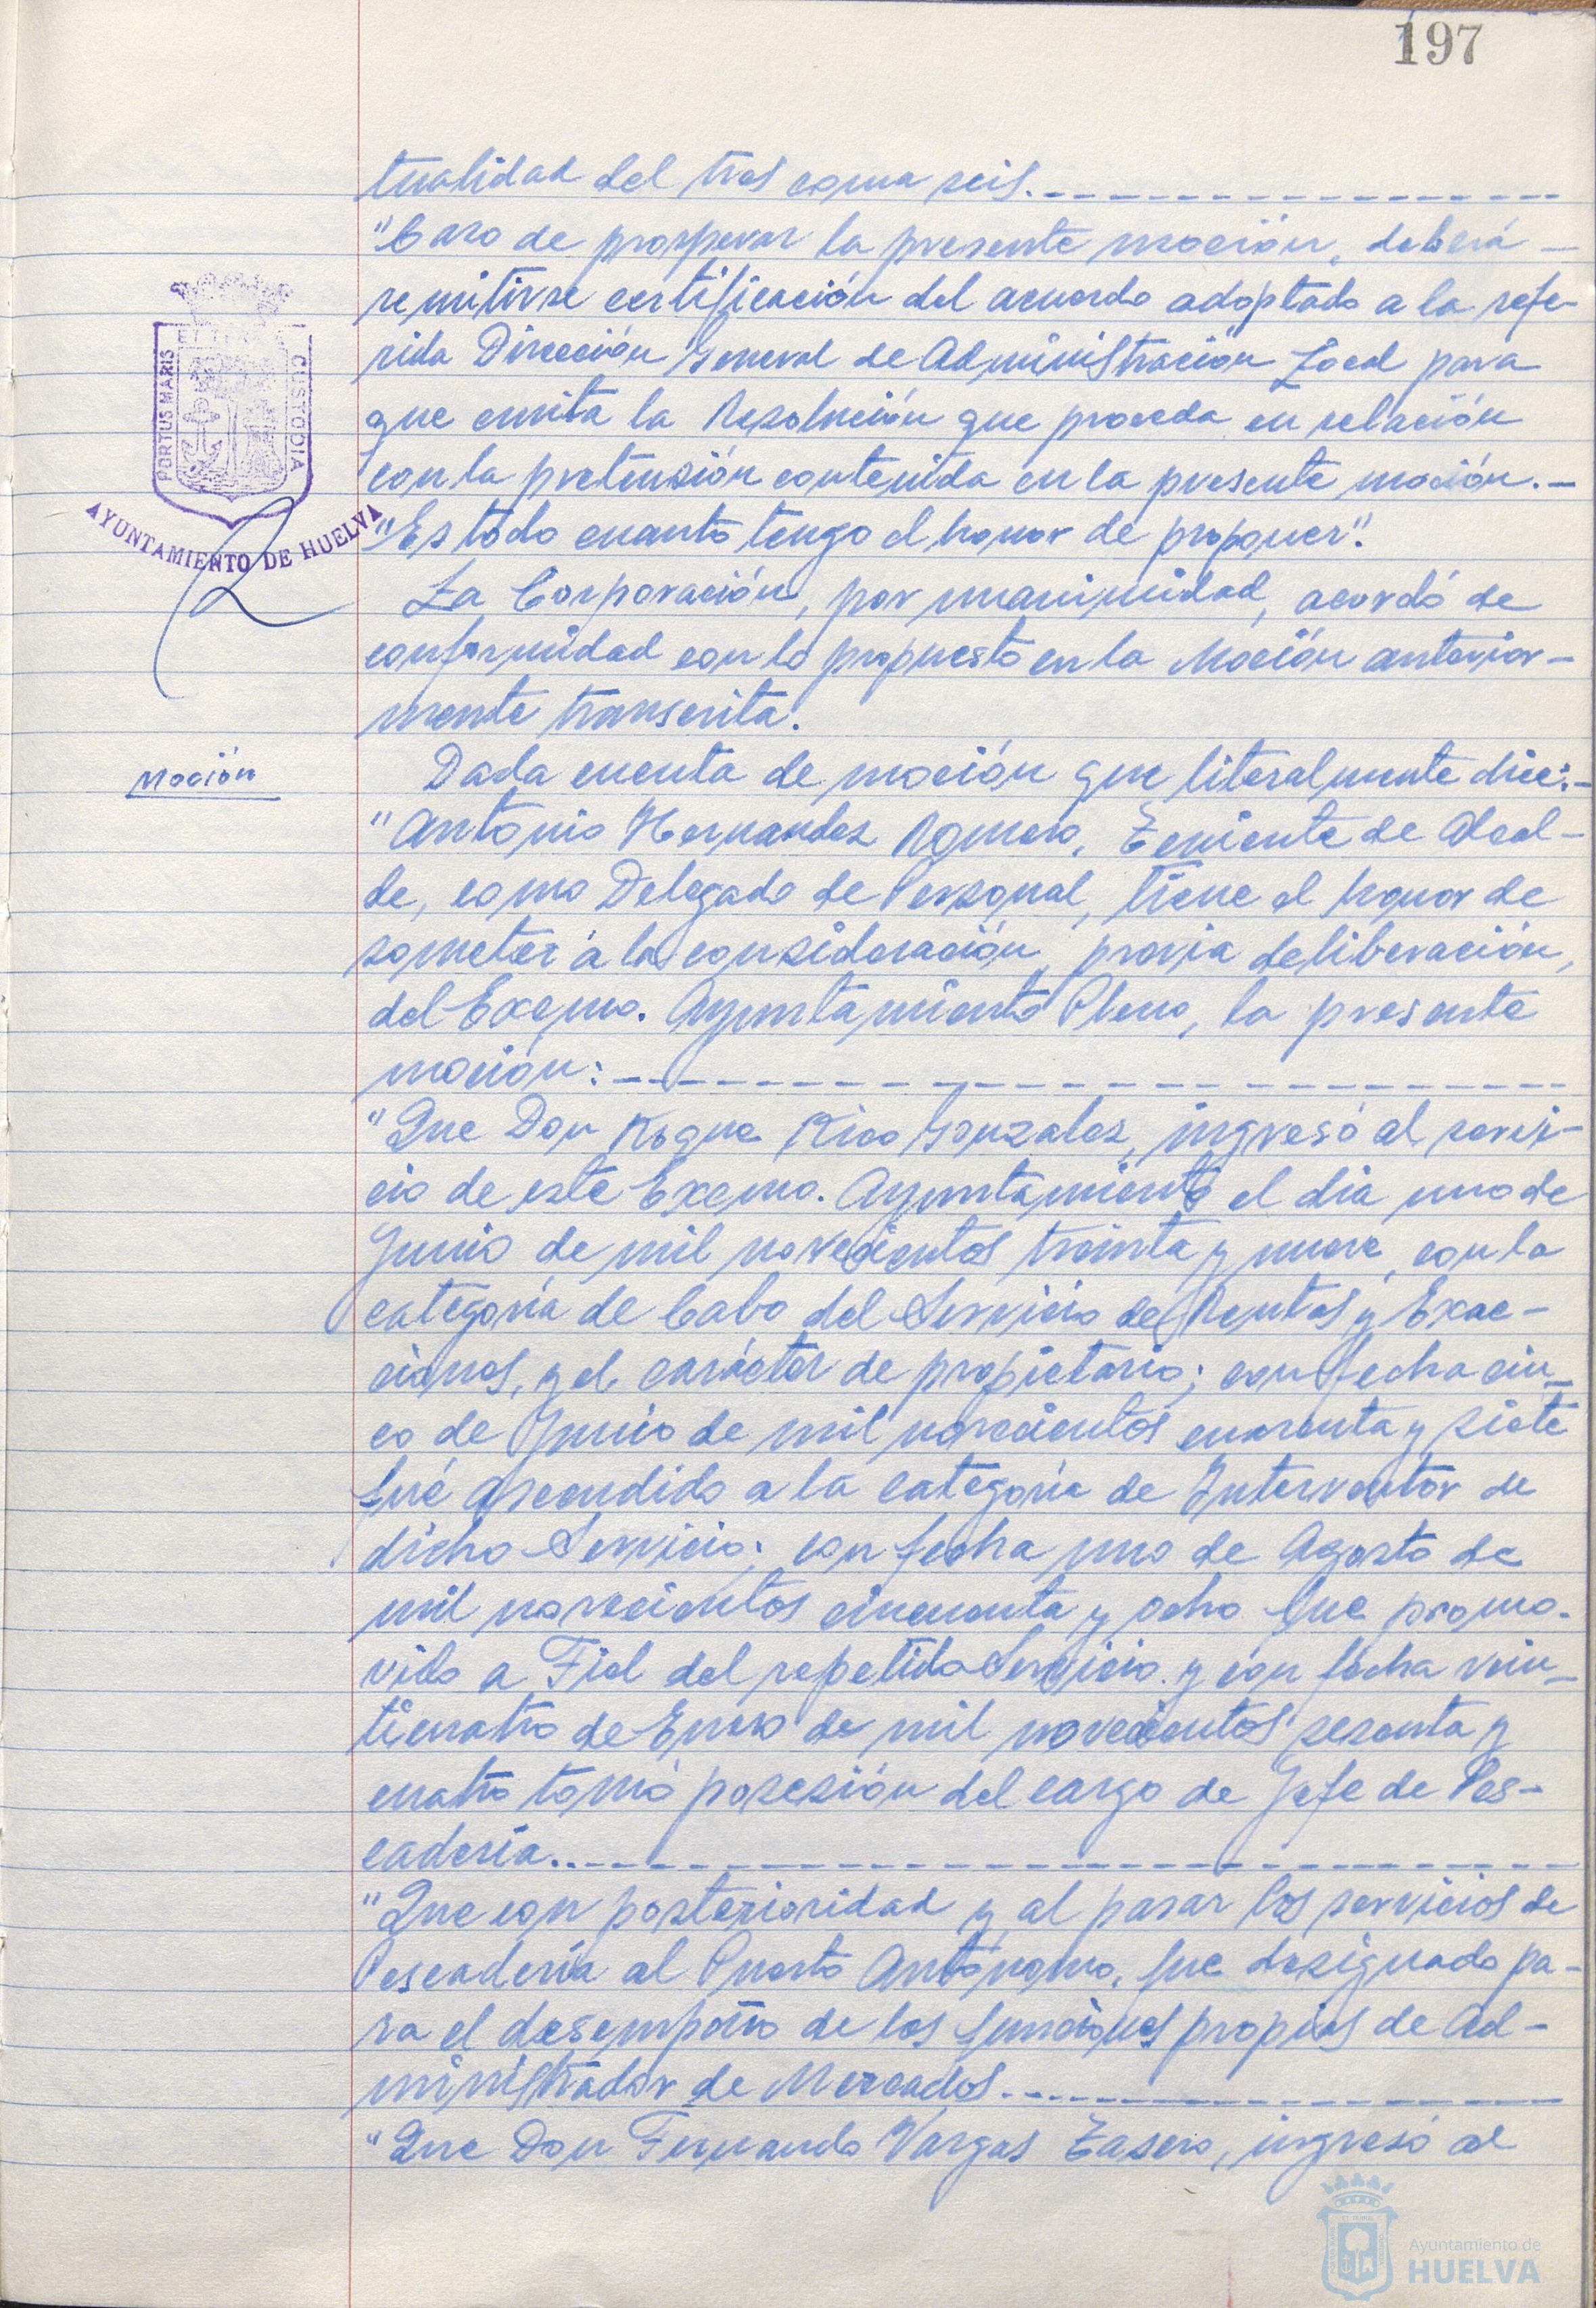 197
tualidad del tres coma seis.
"Caso de prosperar la presente moción, deberá
remitirse certificación del acuerdo adoptado a la refe-
rida Dirección General de Administración Local para
que emita la Resolución que proceda en relación
con la pretensión contenida en la presente moción.-
"Es todo cuanto tengo el honor de proponer".
PORTUS MARIS ET TERRAE CUSTODIA
AYUNTAMIENTO DE HUELVA
La Corporación, por unanimidad, acordó de
conformidad con lo propuesto en la Moción anterior-
mente transcrita.
Moción
Dada cuenta de moción que literalmente dice:-
"Antonio Hernandez Romero, Teniente de Alcal-
de, como Delegado de Personal, tiene el honor de
someter á la consideración, previa deliberación,
del Excmo. Ayuntamiento Pleno, la presente
moción:
"Que Don Roque Rico Gonzalez, ingresó al servi-
cio de este Excmo. Ayuntamiento el dia uno de
Junio de mil novecientos treinta y nueve, con la
categoría de Cabo del Servicio de Rentas y Exac-
ciones, y el carácter de propietario; con fecha cin-
co de Junio de mil novecientos cuarenta y siete
fué ascendido a la categoría de Interventor de
dicho Servicio; con fecha uno de Agosto de
mil novecientos cincuenta y ocho fue promo-
vido a Fiel del repetido Servicio y con fecha vein-
ticuatro de Enero de mil novecientos sesenta y
cuatro tomó posesión del cargo de Jefe de Pes-
cadería.
"Que con posterioridad y al pasar los servicios de
Pescadería al Puerto Autónomo, fue designado pa-
ra el desempeño de las funciones propias de Ad-
ministrador de Mercados.
"Que Don Fernando Vargas Tasero, ingresó al
Ayuntamiento de
HUELVA